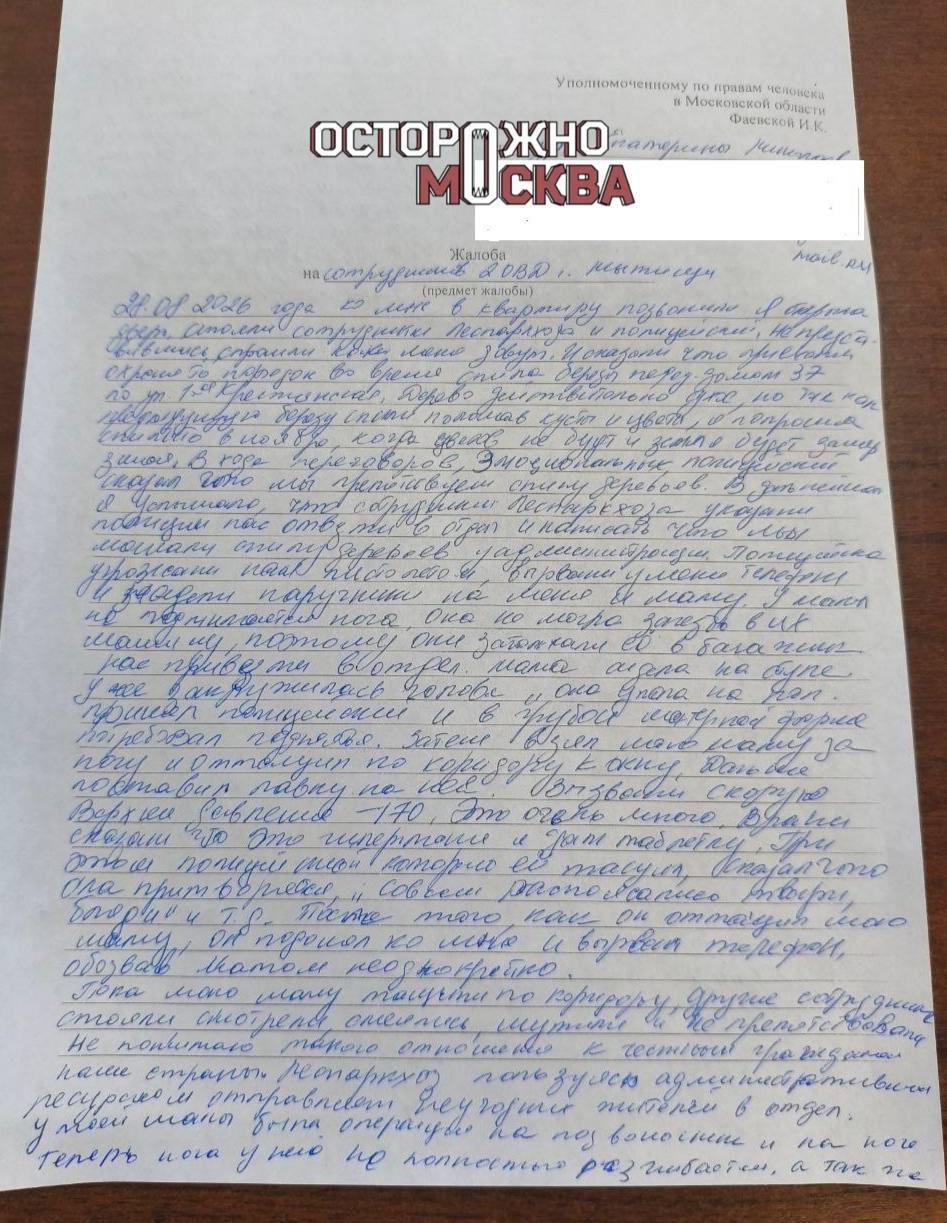 Уполномоченному по правам человека
в Московской области
Фаевской И.К.
ОСТОРОЖНО
МОСКВА
mail.ru
Жалоба
на сотрудников 2 ОВД г. Мытищи
(предмет жалобы)
28.08 2026 года ко мне в квартиру позвонили. Я открыла
дверь стояли сотрудники Леспаркхоза и полицейский. Не предста-
вившись спросили как меня зовут. И сказали что приехали
охранять порядок во время спила березы перед домом 37
по ул. 1-ая Крестьянская. Дерево действительно сухое, но так как
предыдущую березу спилили поломав кусты и цветы, я попросила
спилить в ноябре, когда цветов не будет и земля будет замер
зшая. В ходе переговоров, эмоциональных полицейский
сказал что мы препятствуем спилу деревьев. В дальнейшем
я услышала, что сотрудники Леспаркхоза указали
полиции нас отвезти в отдел и написать что мы
мешали спилу деревьев у администрации. Полицейские
угрожали нам пистолетом, вырвали у меня телефон
и надели наручники на меня и маму. У мамы
не поднимается нога, она не могла залезть в их
машину, поэтому они затолкали её в багажник
нас привезли в отдел. Мама сидела на стуле
у нее закружилась голова, она упала на пол.
Пришел полицейский и в грубой матерной форме
потребовал подняться. Затем взял мою маму за
ногу и оттащил по коридору к окну, дальше
поставил лавку на неё. Вызвали скорую
Верхнее давление – 170. Это очень много. Врачи
сказали что это гипертония и дали таблетку. При
этом полицейский который её тащил, сказал что
она притворяется, "совсем распоясались твари,
" и т.д. После того, как он оттащил мою
маму, он подошел ко мне и вырвал телефон,
обозвав матом неоднократно.
Пока мою маму тащили по коридору, другие сотрудники
стояли смотрели, смеялись, шутили и не препятствовали
Не понимаю такого отношения к честным гражданам
нашей страны. Леспаркхоз пользуясь административным
ресурсом отправляет неугодных жителей в отдел.
У моей мамы была операция на позвоночнике и на ноге
теперь нога у неё не полностью разгибается, а так же